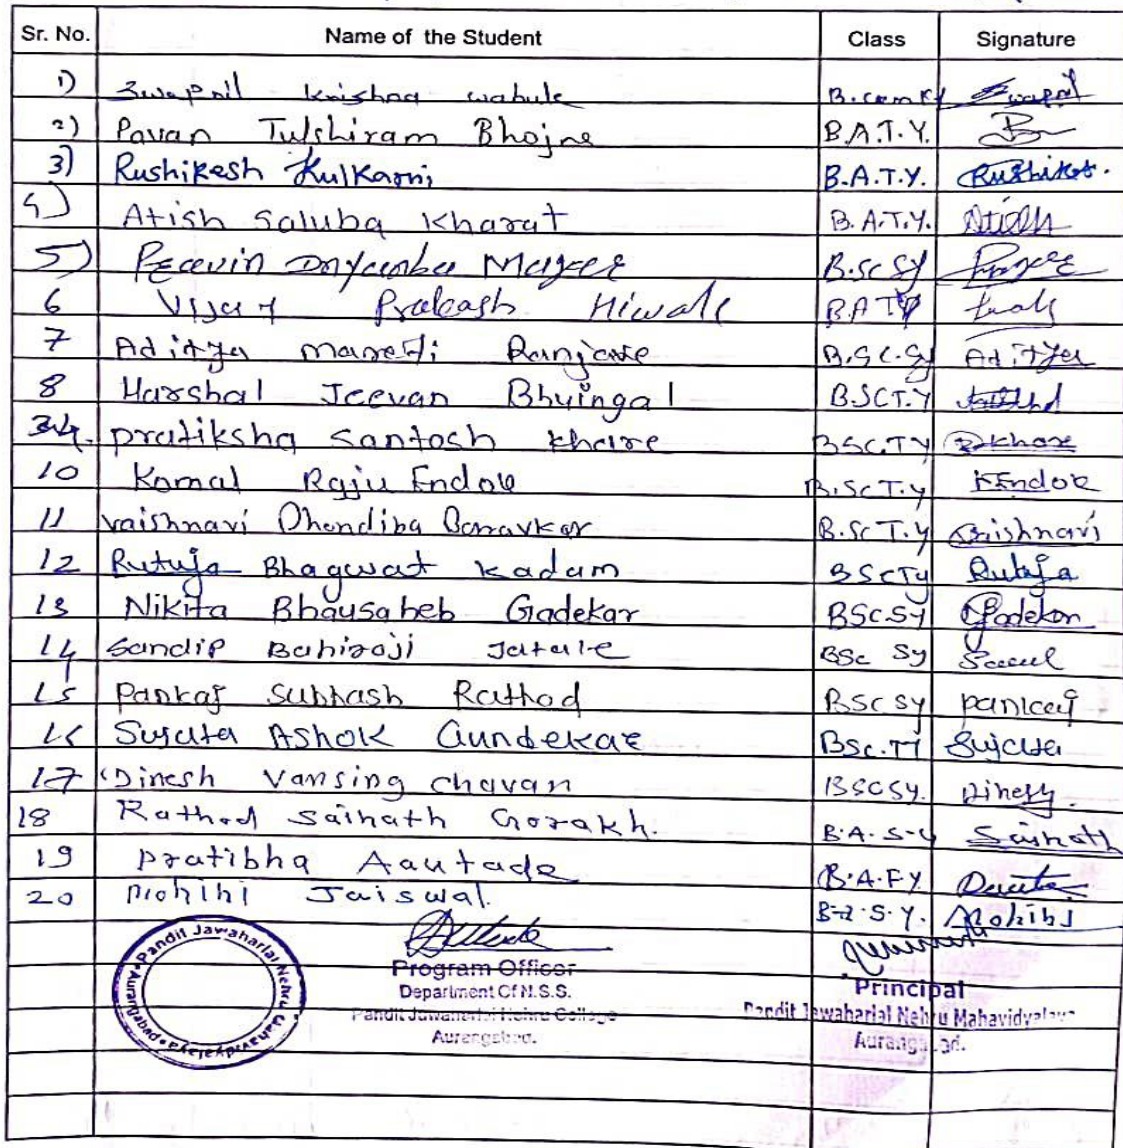 Sr. No. Name of the Student Class Signature
1) Swapnil Krishna wabule B.com Swapnil
2) Pavan Tulshiram Bhojne B.A.T.Y.
3) Rushikesh Kulkarni B.A.T.Y. Rushikesh.
4) Atish Saluba Kharat B.A.T.Y. Atish
5) Dnyanba Magee B.SC SY
6 Vijay Prakash Hiwale B.A TY
7 Aditya Maroti Ranjane B.SC.SY Aditya
8 Harshal Jeevan Bhuingal B.SCT.Y
34. pratiksha santosh khare BSC.TY Pkhare
10 Komal Raju Endole B.Sc T.y KEndole
11 vaishnavi Dhondiba Banavkar B.Sc T.y vaishnavi
12 Rutuja Bhagwat Kadam BScTy Rutuja
13 Nikita Bhausaheb Gadekar BSc.SY Gadekar
14 Sandip Bahiroji Jatale BSc Sy
15 Pankaj Subhash Rathod BSC SY pankaj
16 Sujata Ashok Gundekar BSc.TY Sujata
17 Dinesh Vansing Chavan BSCSY. Dinesh.
18 Rathod Sainath Gorakh. B.A. S-Y Sainath
19 Pratibha Aautade B.A.F.Y
20 Mohini Jaiswal. B.A.S.Y. Mohini
Pandit Jawaharlal Nehru Mahavidyalaya Aurangabad
Program Officer
Department Of N.S.S.
Pandit Jawaharlal Nehru College
Aurangabad.
Principal
Pandit Jawaharlal Nehru Mahavidyalaya
Aurangabad.